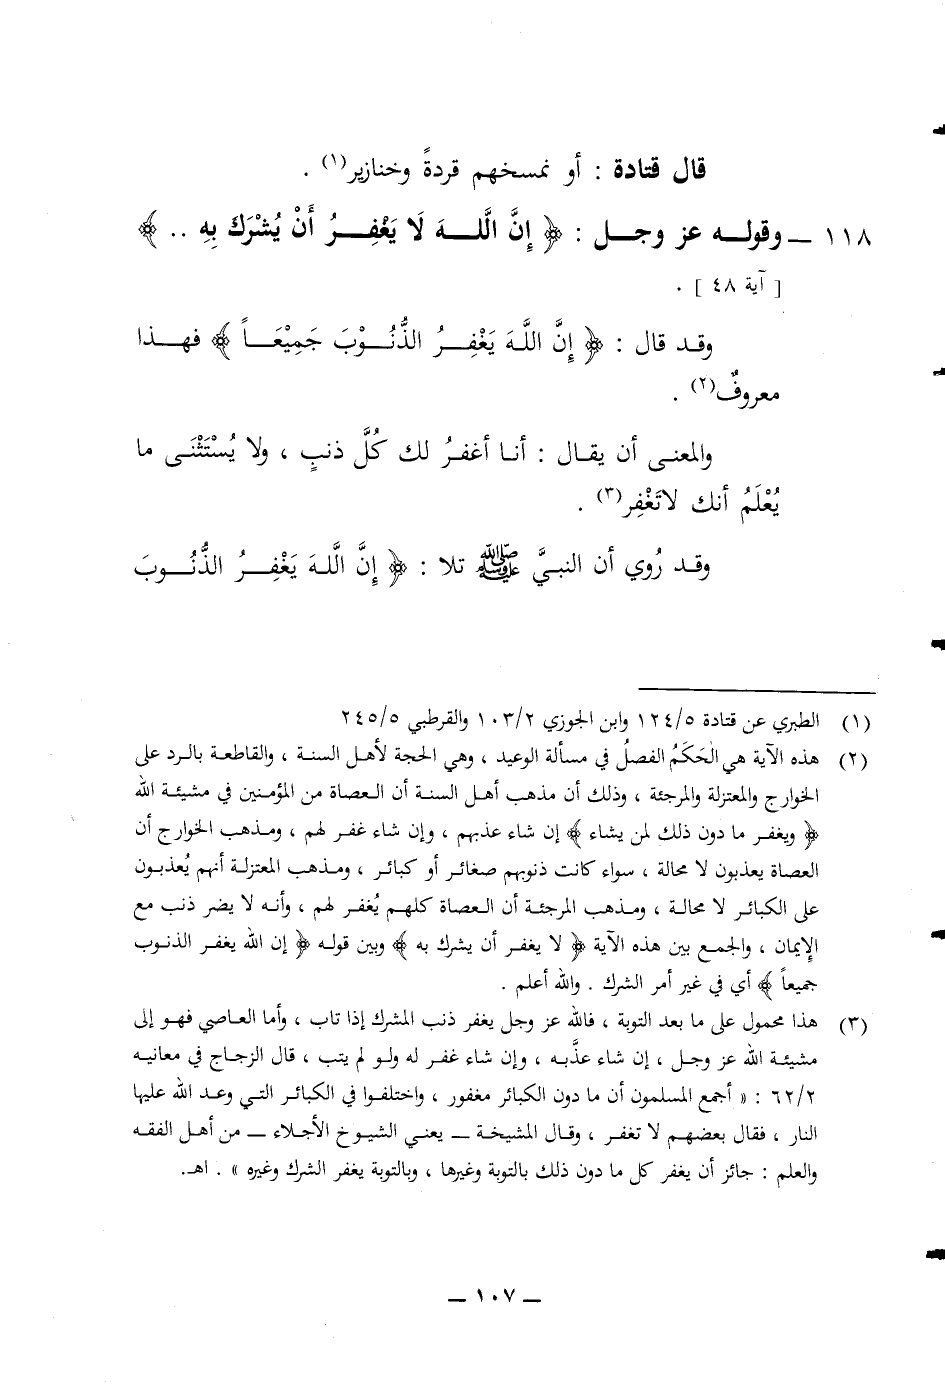 قال قتادة : أو نمسخهم قردةً وخنازير(١) .
١١٨ ــ وقولـه عز وجـل : ﴿ إِنَّ الَّلـهَ لَا يَغْفِـرُ أَنْ يُشْرَكَ بِهِ .. ﴾
[ آية ٤٨ ] .
وقد قال : ﴿ إِنَّ اللَّهَ يَغْفِـرُ الذُّنُـوْبَ جَمِيْعَـاً ﴾ فهـذا
معروفٌ(٢) .
والمعنى أن يقال : أنا أغفرُ لك كُلَّ ذنبٍ ، ولا يُسْتَثْنَى ما
يُعْلَمُ أنك لاتَغْفِر(٣) .
وقد رُوي أن النبيَّ ﷺ تلا : ﴿ إِنَّ الَّلهَ يَغْفِـرُ الذُّنُـوبَ
(١) الطبري عن قتادة ١٢٤/٥ وابن الجوزي ١٠٣/٢ والقرطبي ٢٤٥/٥
(٢) هذه الآية هي الحَكَمُ الفصلُ في مسألة الوعيد ، وهي الحجة لأهل السنة ، والقاطعة بالرد على
الخوارج والمعتزلة والمرجئة ، وذلك أن مذهب أهل السنة أن العصاة من المؤمنين في مشيئة الله
﴿ ويغفر ما دون ذلك لمن يشاء ﴾ إن شاء عذبهم ، وإن شاء غفر لهم ، ومذهب الخوارج أن
العصاة يعذبون لا محالة ، سواء كانت ذنوبهم صغائر أو كبائر ، ومذهب المعتزلة أنهم يُعذبون
على الكبائر لا محالة ، ومذهب المرجئة أن العصاة كلهم يُغفر لهم ، وأنه لا يضر ذنب مع
الإيمان ، والجمع بين هذه الآية ﴿ لا يغفر أن يشرك به ﴾ وبين قوله ﴿ إن الله يغفر الذنوب
جميعاً ﴾ أي في غير أمر الشرك . والله أعلم .
(٣) هذا محمول على ما بعد التوبة ، فالله عز وجل يغفر ذنب المشرك إذا تاب ، وأما العاصي فهو إلى
مشيئة الله عز وجل ، إن شاء عذَّبه ، وإن شاء غفر له ولو لم يتب ، قال الزجاج في معانيه
٦٢/٢ : « أجمع المسلمون أن ما دون الكبائر مغفور ، واختلفوا في الكبائر التي وعد الله عليها
النار ، فقال بعضهم لا تغفر ، وقال المشيخة ــ يعني الشيوخ الأجلاء ــ من أهل الفقه
والعلم : جائز أن يغفر كل ما دون ذلك بالتوبة وغيرها ، وبالتوبة يغفر الشرك وغيره » . اهـ.
ــ ١٠٧ ــ